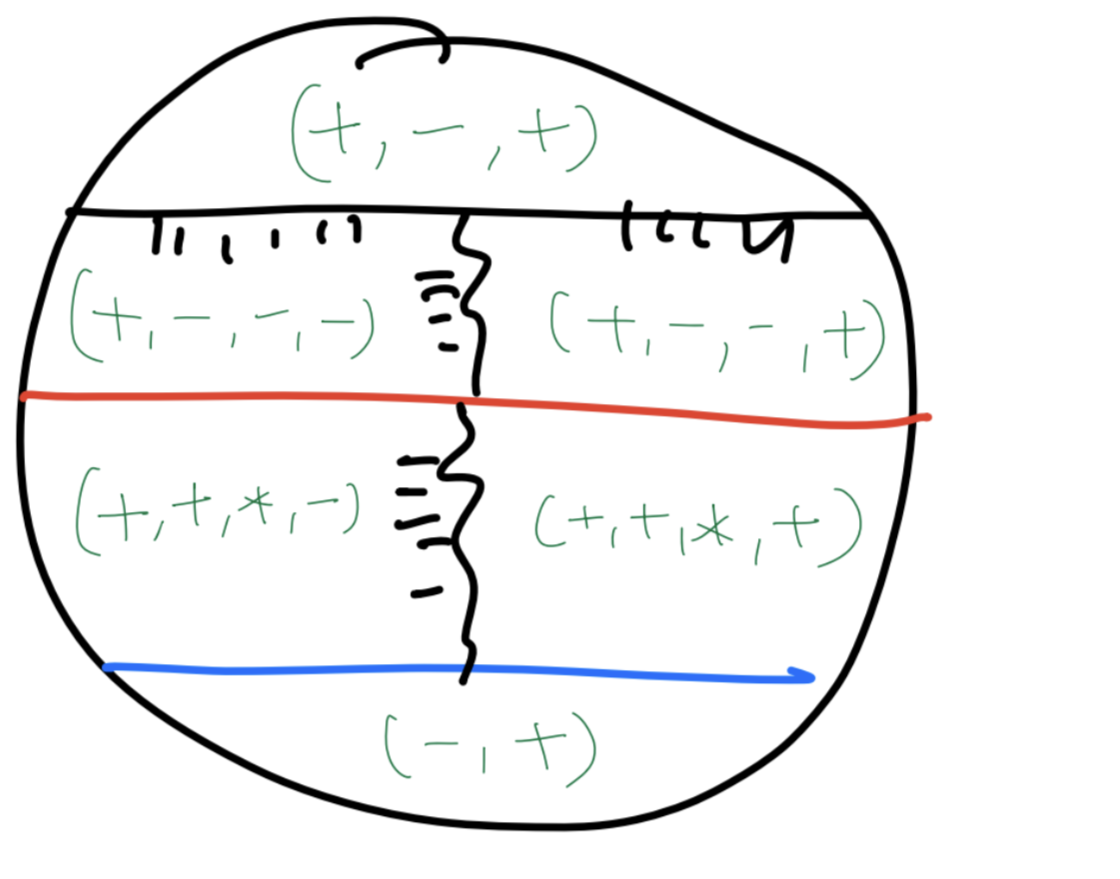 (+, -, +)
(+, -, -, -) (+, -, -, +)
(+, +, *, -) (+, +, *, +)
(-, +)